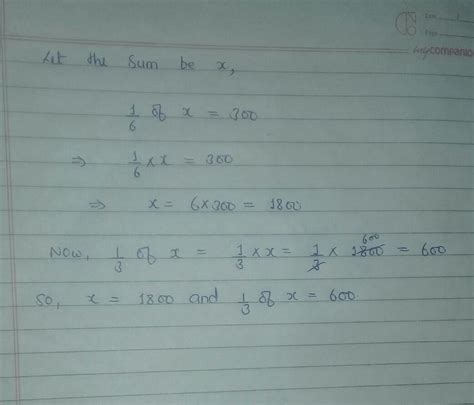 Let the sum be x,
1/6 of x = 300
⇒ 1/6 × x = 300
⇒ x = 6×300 = 1800
Now, 1/3 of x = 1/3 × x = 1/3 × 1800 600 = 600
So, x = 1800 and 1/3 of x = 600